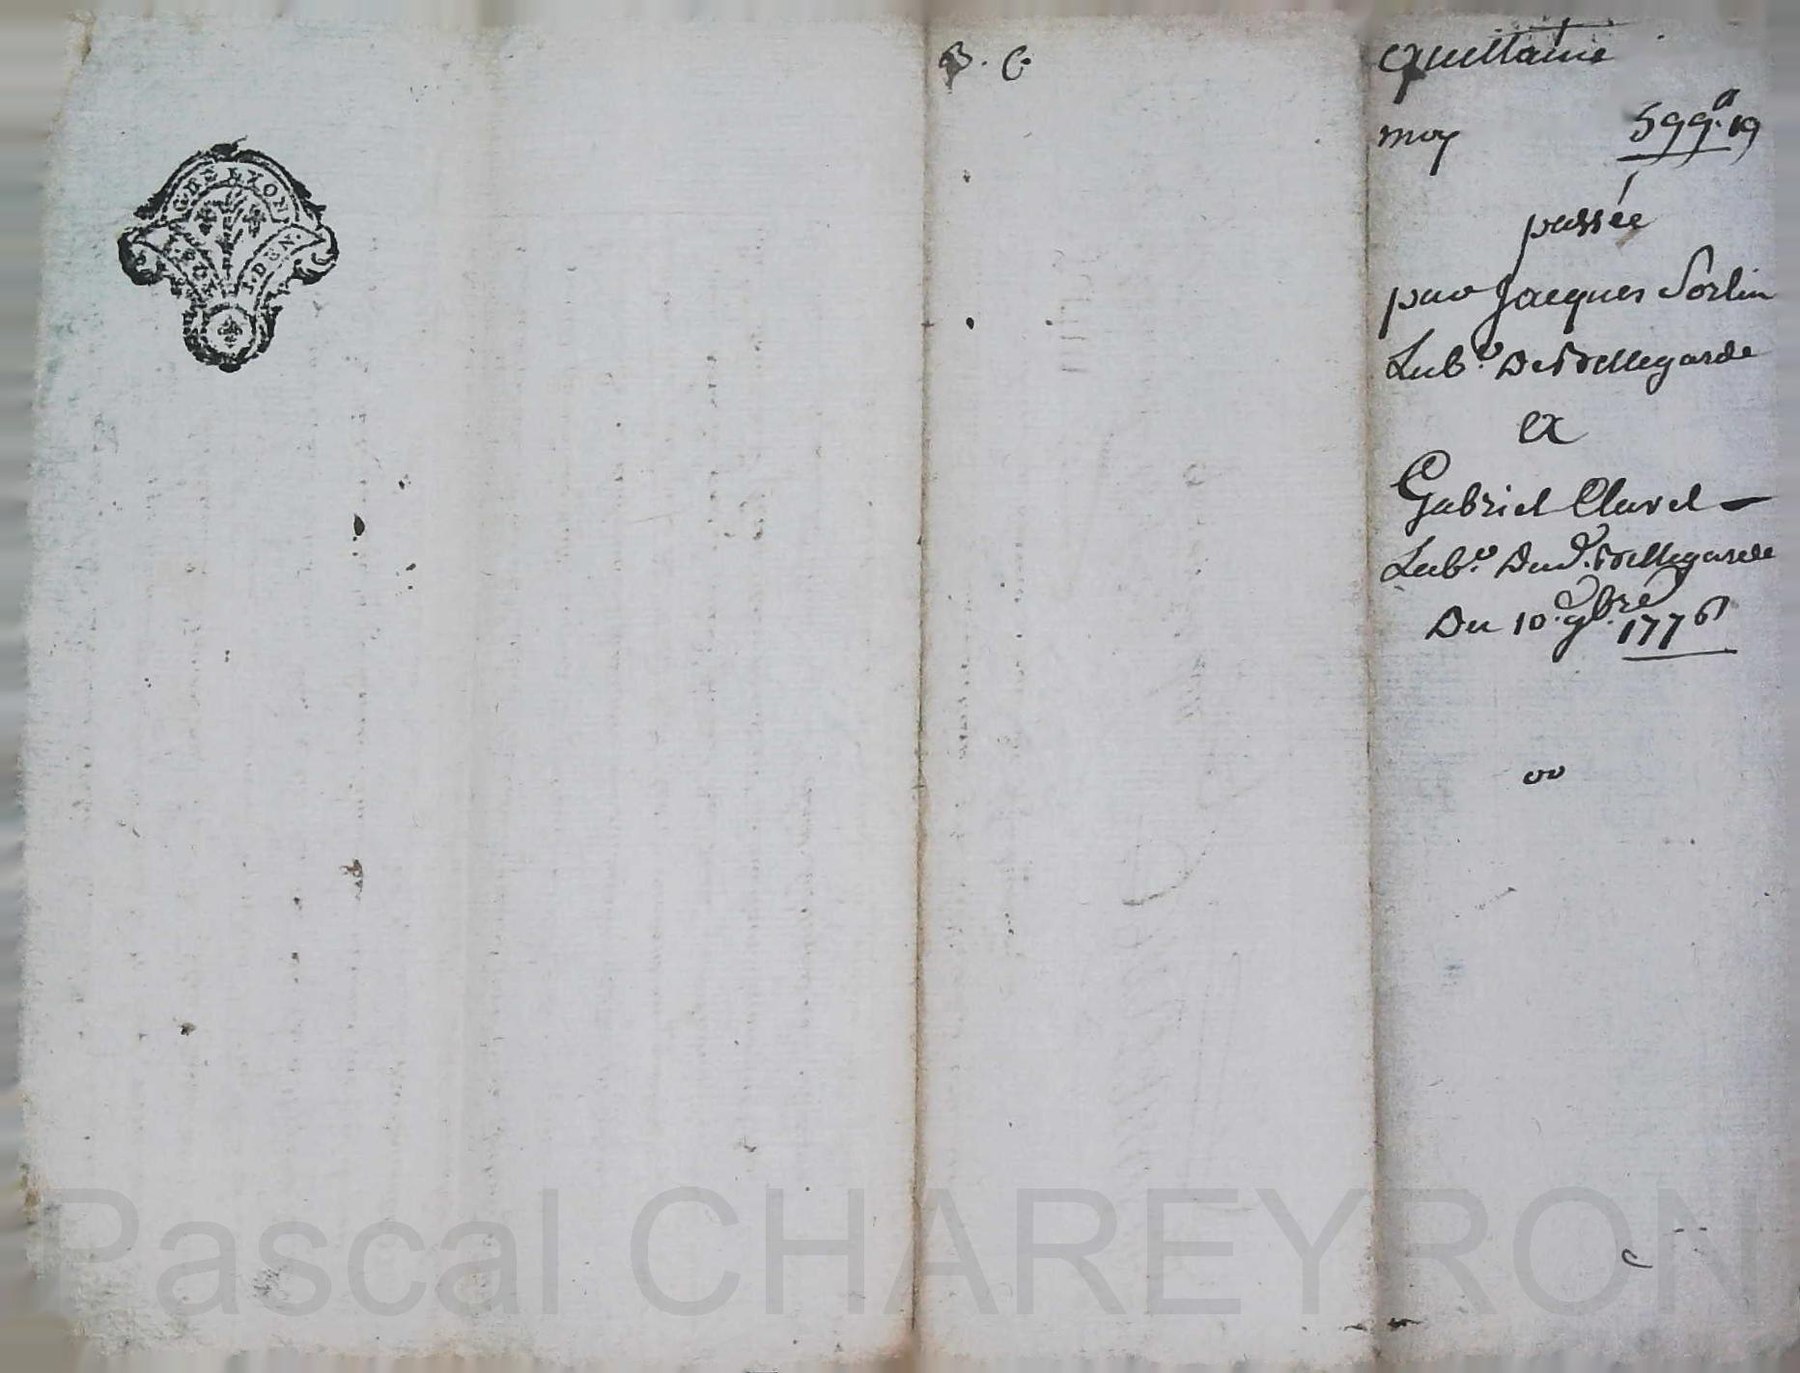 GNE LYON
B. C.
quittance
moy 599# 19
passée
par Jacques Sorlin
Lab.r De Bellegarde
a
Gabriel Clavel
Lab.r Dud. Bellegarde
Du 10. 9bre 1776
Pascal CHAREYRON